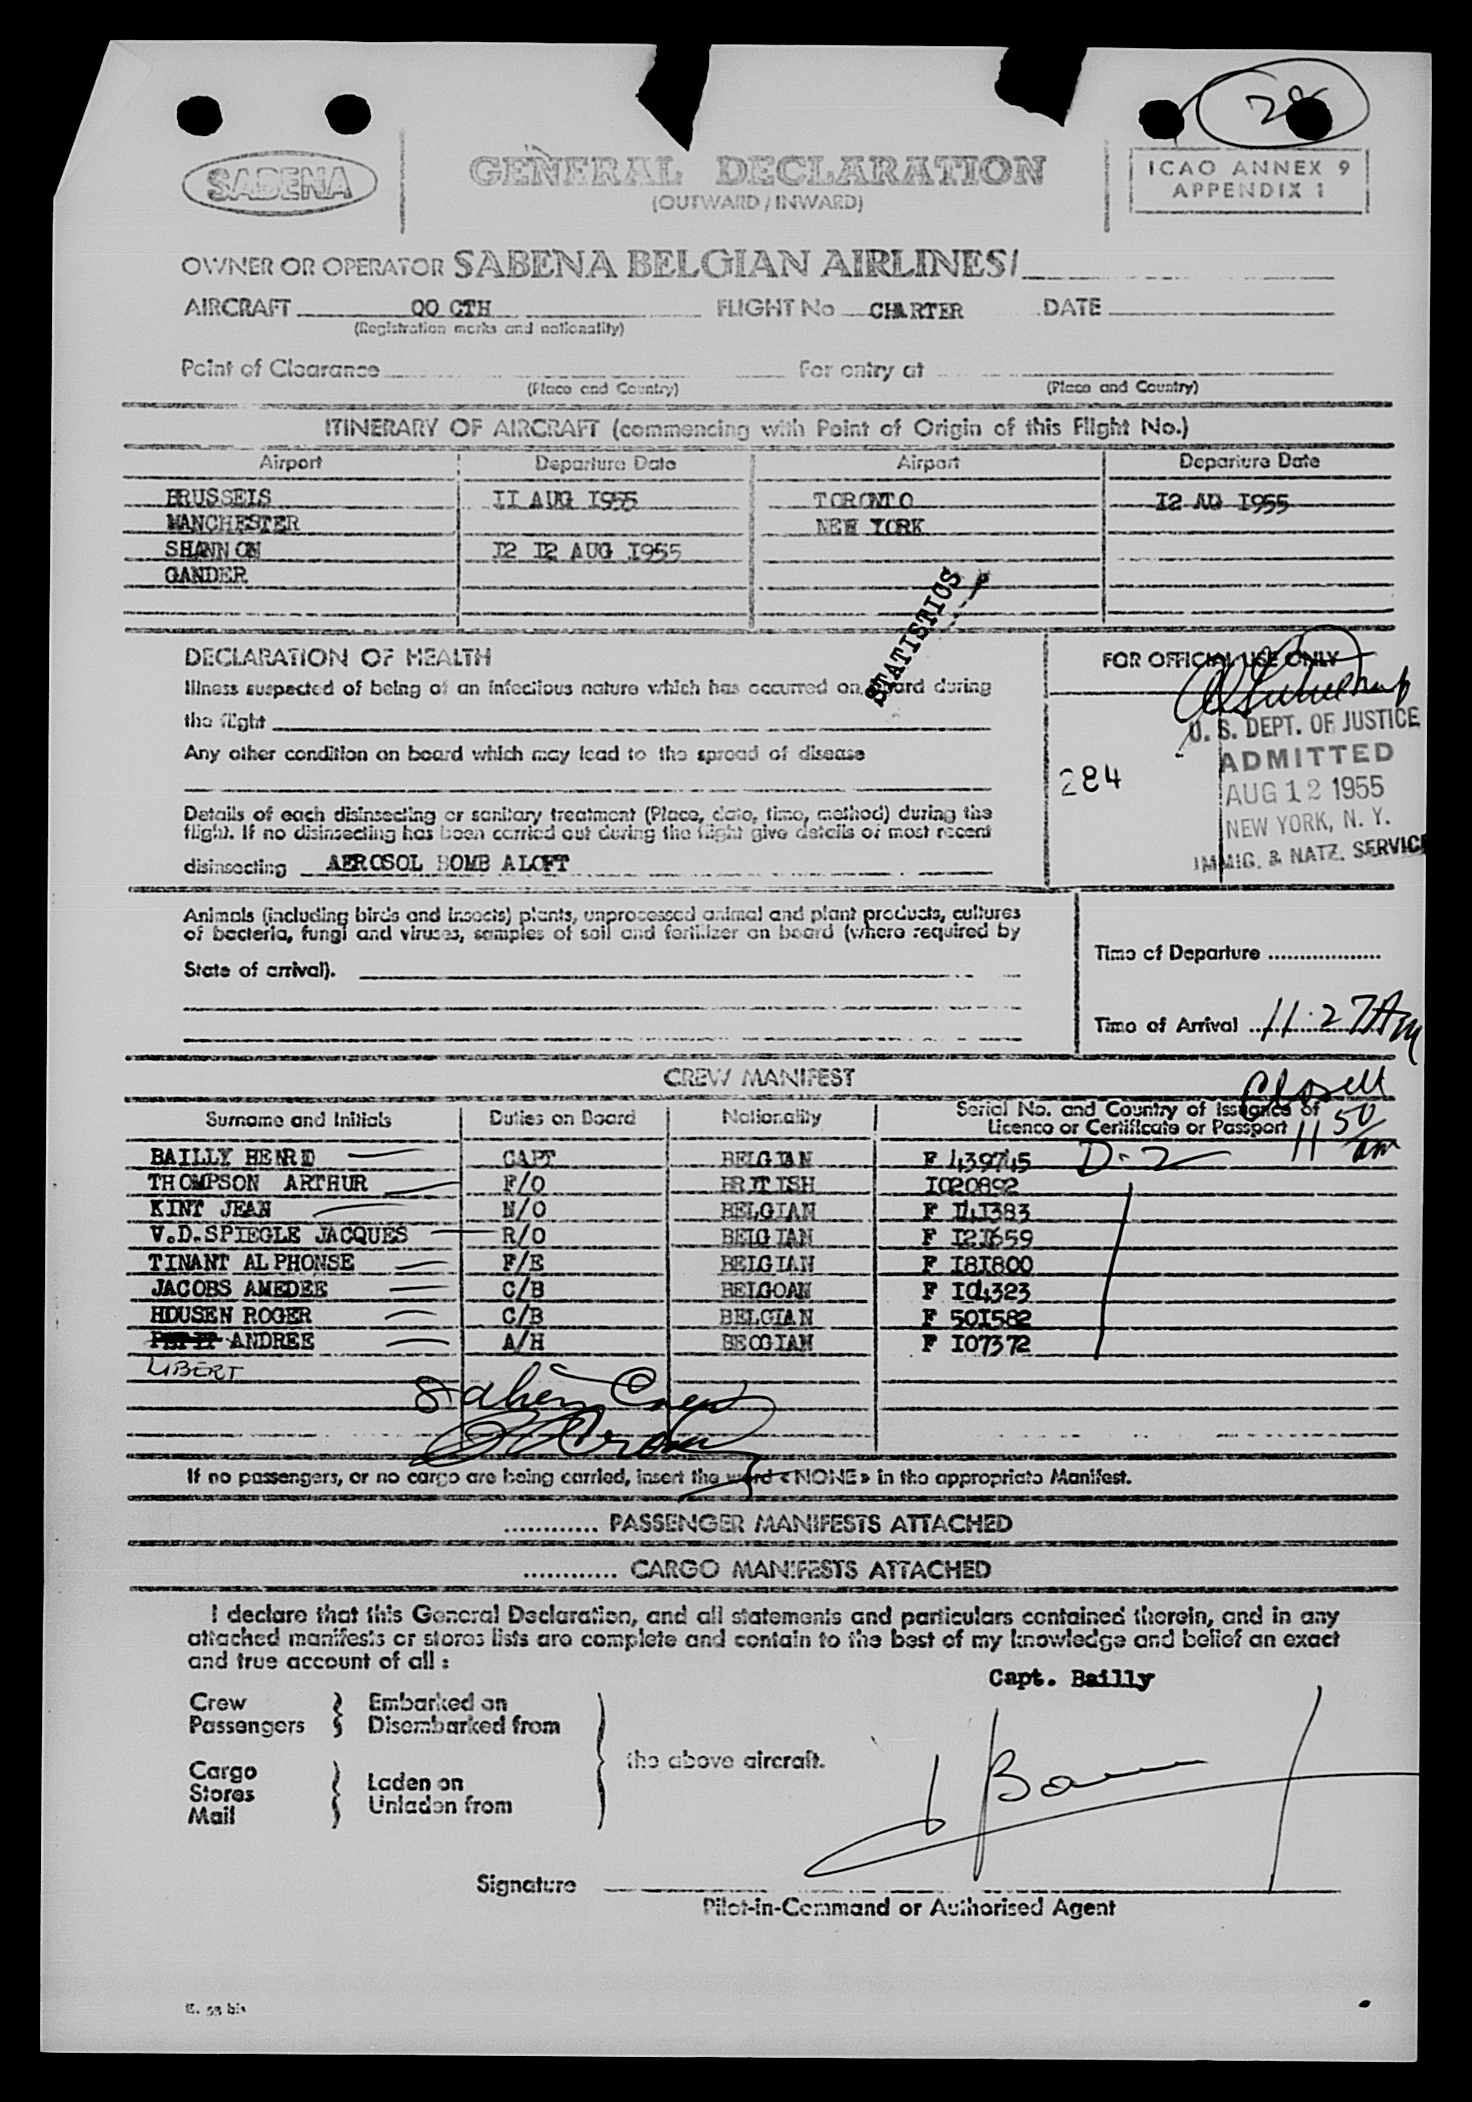 28
SABENA
GENERAL DECLARATION
(OUTWARD / INWARD)
ICAO ANNEX 9
APPENDIX 1
OWNER OR OPERATOR SABENA BELGIAN AIRLINES/
AIRCRAFT OO CTH FLIGHT No CHARTER DATE
(Registration marks and nationality)
Point of Clearance For entry at
(Place and Country) (Place and Country)
ITINERARY OF AIRCRAFT (commencing with Point of Origin of this Flight No.)
Airport Departure Date Airport Departure Date
BRUSSELS II AUG I955 TORONTO I2 AU I955
MANCHESTER NEW YORK
SHANNON I2 I2 AUG I955
GANDER
STATISTICS
DECLARATION OF HEALTH
FOR OFFICIAL USE ONLY
Illness suspected of being of an infectious nature which has occurred on board during
the flight
Any other condition on board which may lead to the spread of disease
U. S. DEPT. OF JUSTICE
ADMITTED
AUG 12 1955
NEW YORK, N. Y.
IMMIG. & NATZ. SERVICE
284
Details of each disinsecting or sanitary treatment (Place, date, time, method) during the
flight. If no disinsecting has been carried out during the flight give details of most recent
disinsecting AEROSOL BOMB ALOFT
Animals (including birds and insects) plants, unprocessed animal and plant products, cultures
of bacteria, fungi and viruses, samples of soil and fertilizer on board (where required by
State of arrival).
Time of Departure
Time of Arrival 11:27 AM
CREW MANIFEST
Surname and Initials Duties on Board Nationality Serial No. and Country of Issuance of
Licence or Certificate or Passport
11 50 am
BAILLY HENRI CAPT BELGIAN F 439745 D-2
THOMPSON ARTHUR F/O BRITISH I020892
KINT JEAN N/O BELGIAN F I4I383
V.D.SPIEGLE JACQUES R/O BELGIAN F I2I659
TINANT ALPHONSE F/E BELGIAN F I8I800
JACOBS AMEDEE C/B BELGOAN F I04323
HOUSEN ROGER C/B BELGIAN F 50I582
ANDREE A/H BEOGIAN F I07372
LIBERT
If no passengers, or no cargo are being carried, insert the word «NONE» in the appropriate Manifest.
............ PASSENGER MANIFESTS ATTACHED
............ CARGO MANIFESTS ATTACHED
I declare that this General Declaration, and all statements and particulars contained therein, and in any
attached manifests or stores lists are complete and contain to the best of my knowledge and belief an exact
and true account of all :
Capt. Bailly
Crew Embarked on
Passengers Disembarked from
the above aircraft.
Cargo
Stores Laden on
Mail Unladen from
Signature
Pilot-in-Command or Authorised Agent